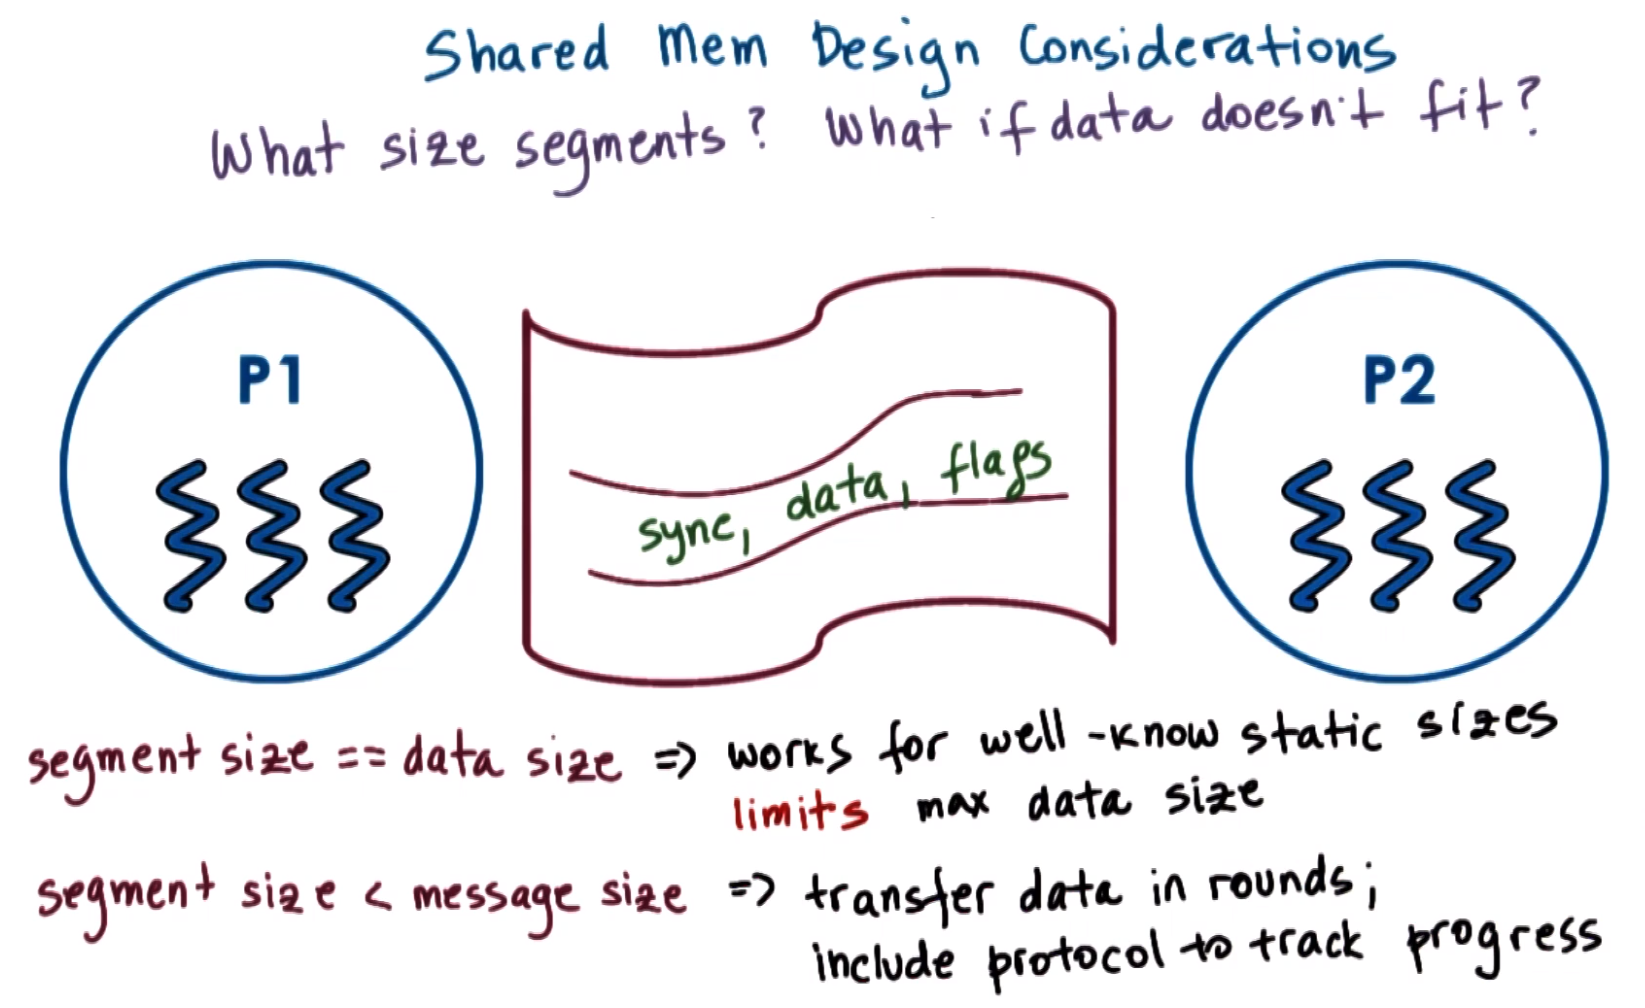 Shared Mem Design Considerations
What size segments? What if data doesn't fit?
P1
P2
sync, data, flags
segment size == data size => works for well-know static sizes
limits max data size
segment size < message size => transfer data in rounds;
include protocol to track progress